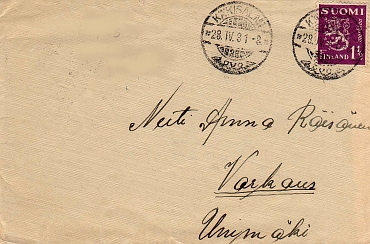 SUOMI
FINLAND 1½
28. IV. 31 - 8.
Neiti Anna Räisänen
Varkaus
Unimäki